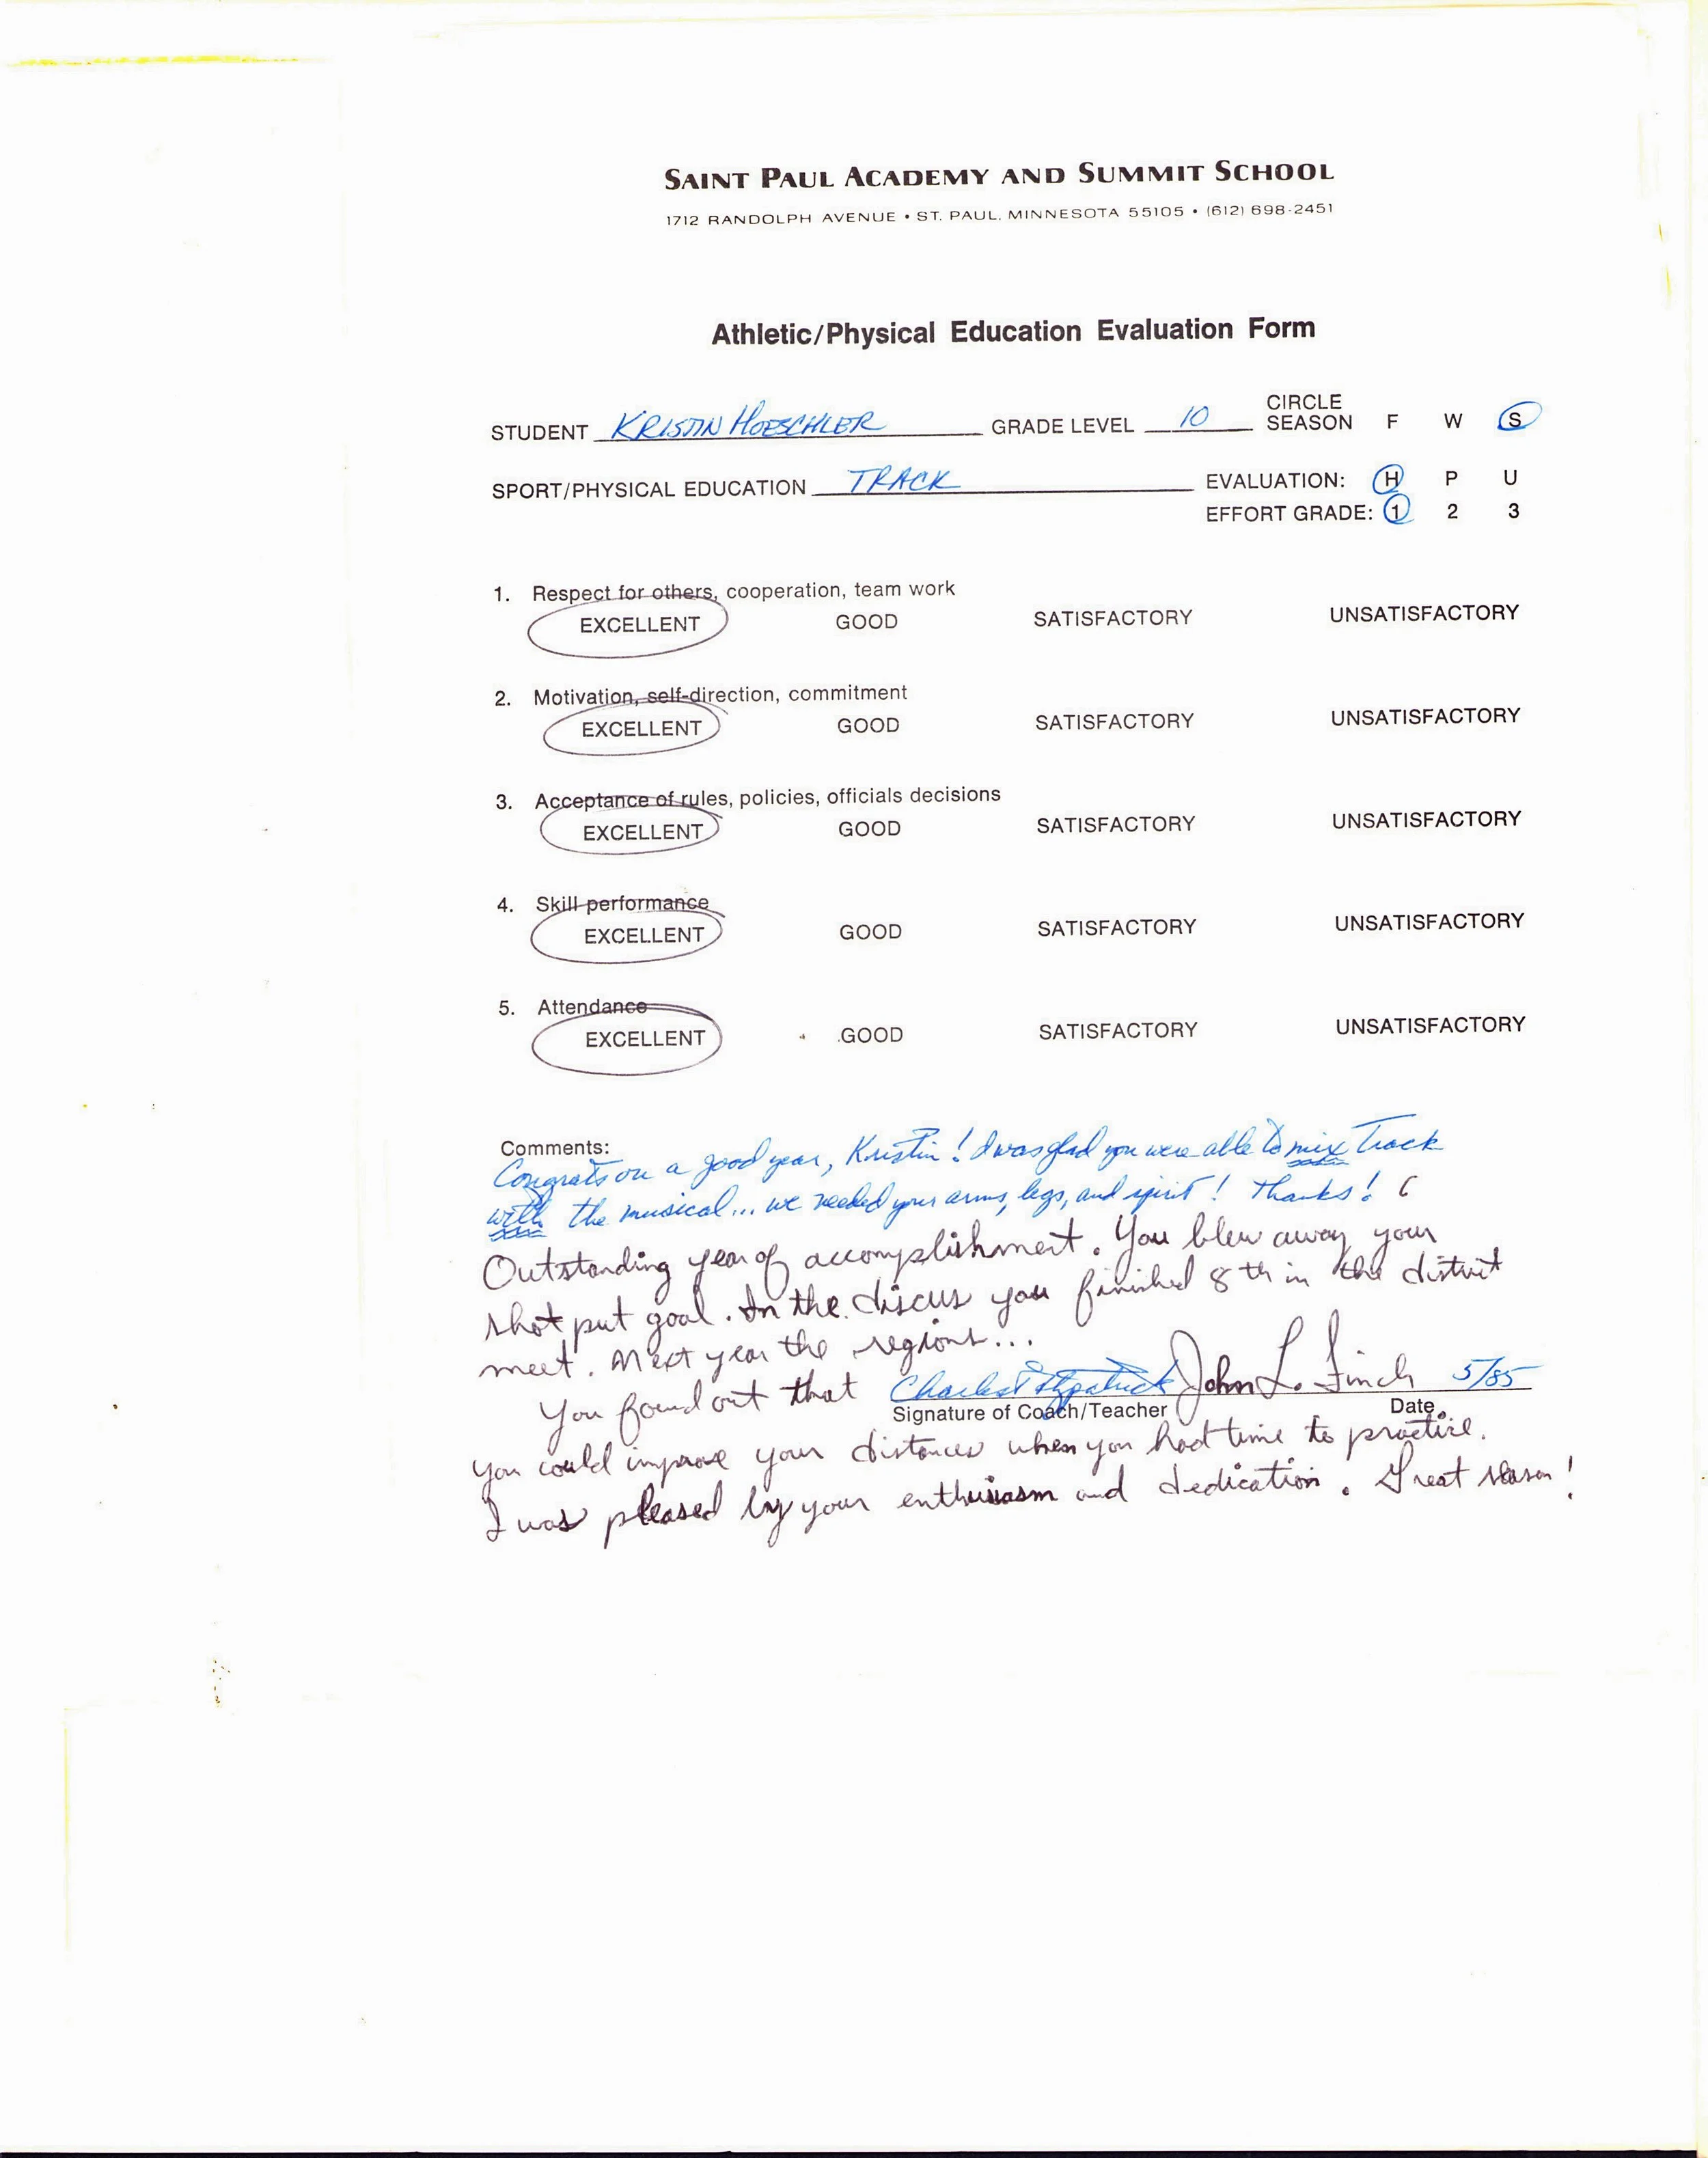 SAINT PAUL ACADEMY AND SUMMIT SCHOOL
1712 RANDOLPH AVENUE • ST. PAUL, MINNESOTA 55105 • (612) 698-2451
Athletic/Physical Education Evaluation Form
STUDENT KRISTIN HOESCHLER GRADE LEVEL 10 CIRCLE SEASON F W S
SPORT/PHYSICAL EDUCATION TRACK EVALUATION: H P U
EFFORT GRADE: 1 2 3
1. Respect for others, cooperation, team work
EXCELLENT GOOD SATISFACTORY UNSATISFACTORY
2. Motivation, self-direction, commitment
EXCELLENT GOOD SATISFACTORY UNSATISFACTORY
3. Acceptance of rules, policies, officials decisions
EXCELLENT GOOD SATISFACTORY UNSATISFACTORY
4. Skill performance
EXCELLENT GOOD SATISFACTORY UNSATISFACTORY
5. Attendance
EXCELLENT GOOD SATISFACTORY UNSATISFACTORY
Comments:
Congrats on a good year, Kristin! I was glad you were able to mix Track
with the musical... we needed your arms, legs, and spirit! Thanks!
Outstanding year of accomplishment. You blew away your
shot put goal. In the discus you finished 8th in the district
meet. Next year the regions...
You found out that Charles Fitzpatrick John L. Finch 5/85
Signature of Coach/Teacher Date
you could improve your distances when you had time to practice.
I was pleased by your enthusiasm and dedication. Great season!